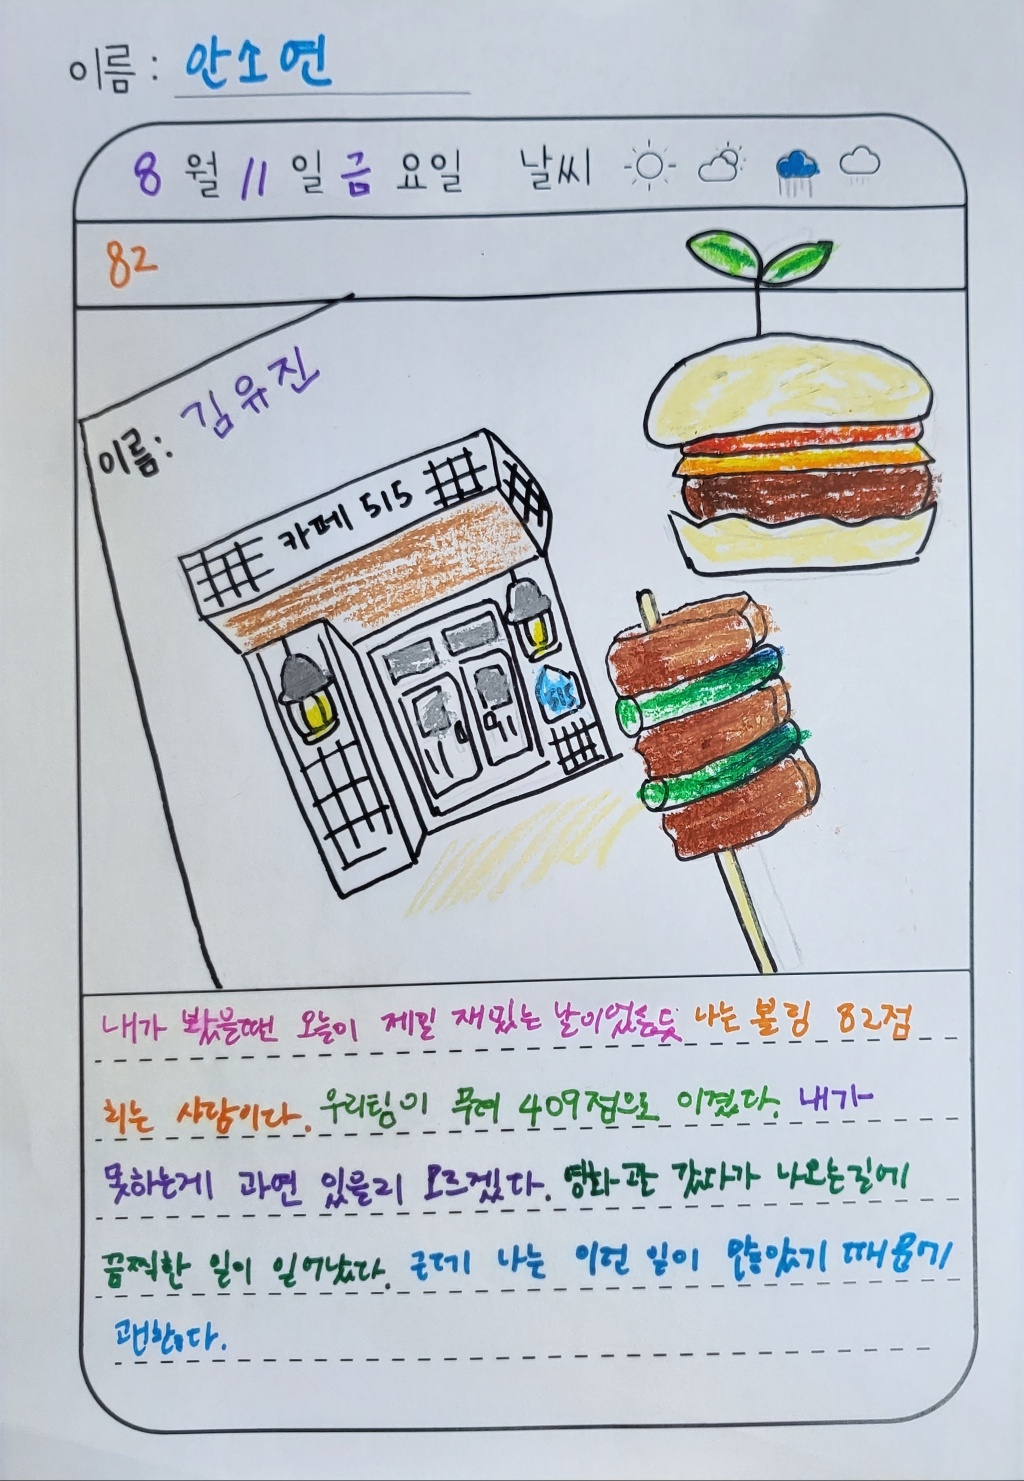 이름 : 안소연
8 월 11 일 금 요일 날씨
82
이름: 김유진
카페 515
515
내가 봤을땐 오늘이 제일 재밌는 날이었는듯 나는 볼링 82점
치는 사람이다. 우리팀이 무려 409점으로 이겼다. 내가
못하는게 과연 있을리 모르겠다. 영화관 갔다가 나오는길에
끔찍한 일이 일어났다. 근데 나는 이런 일이 많았기 때문에
괜찮다.